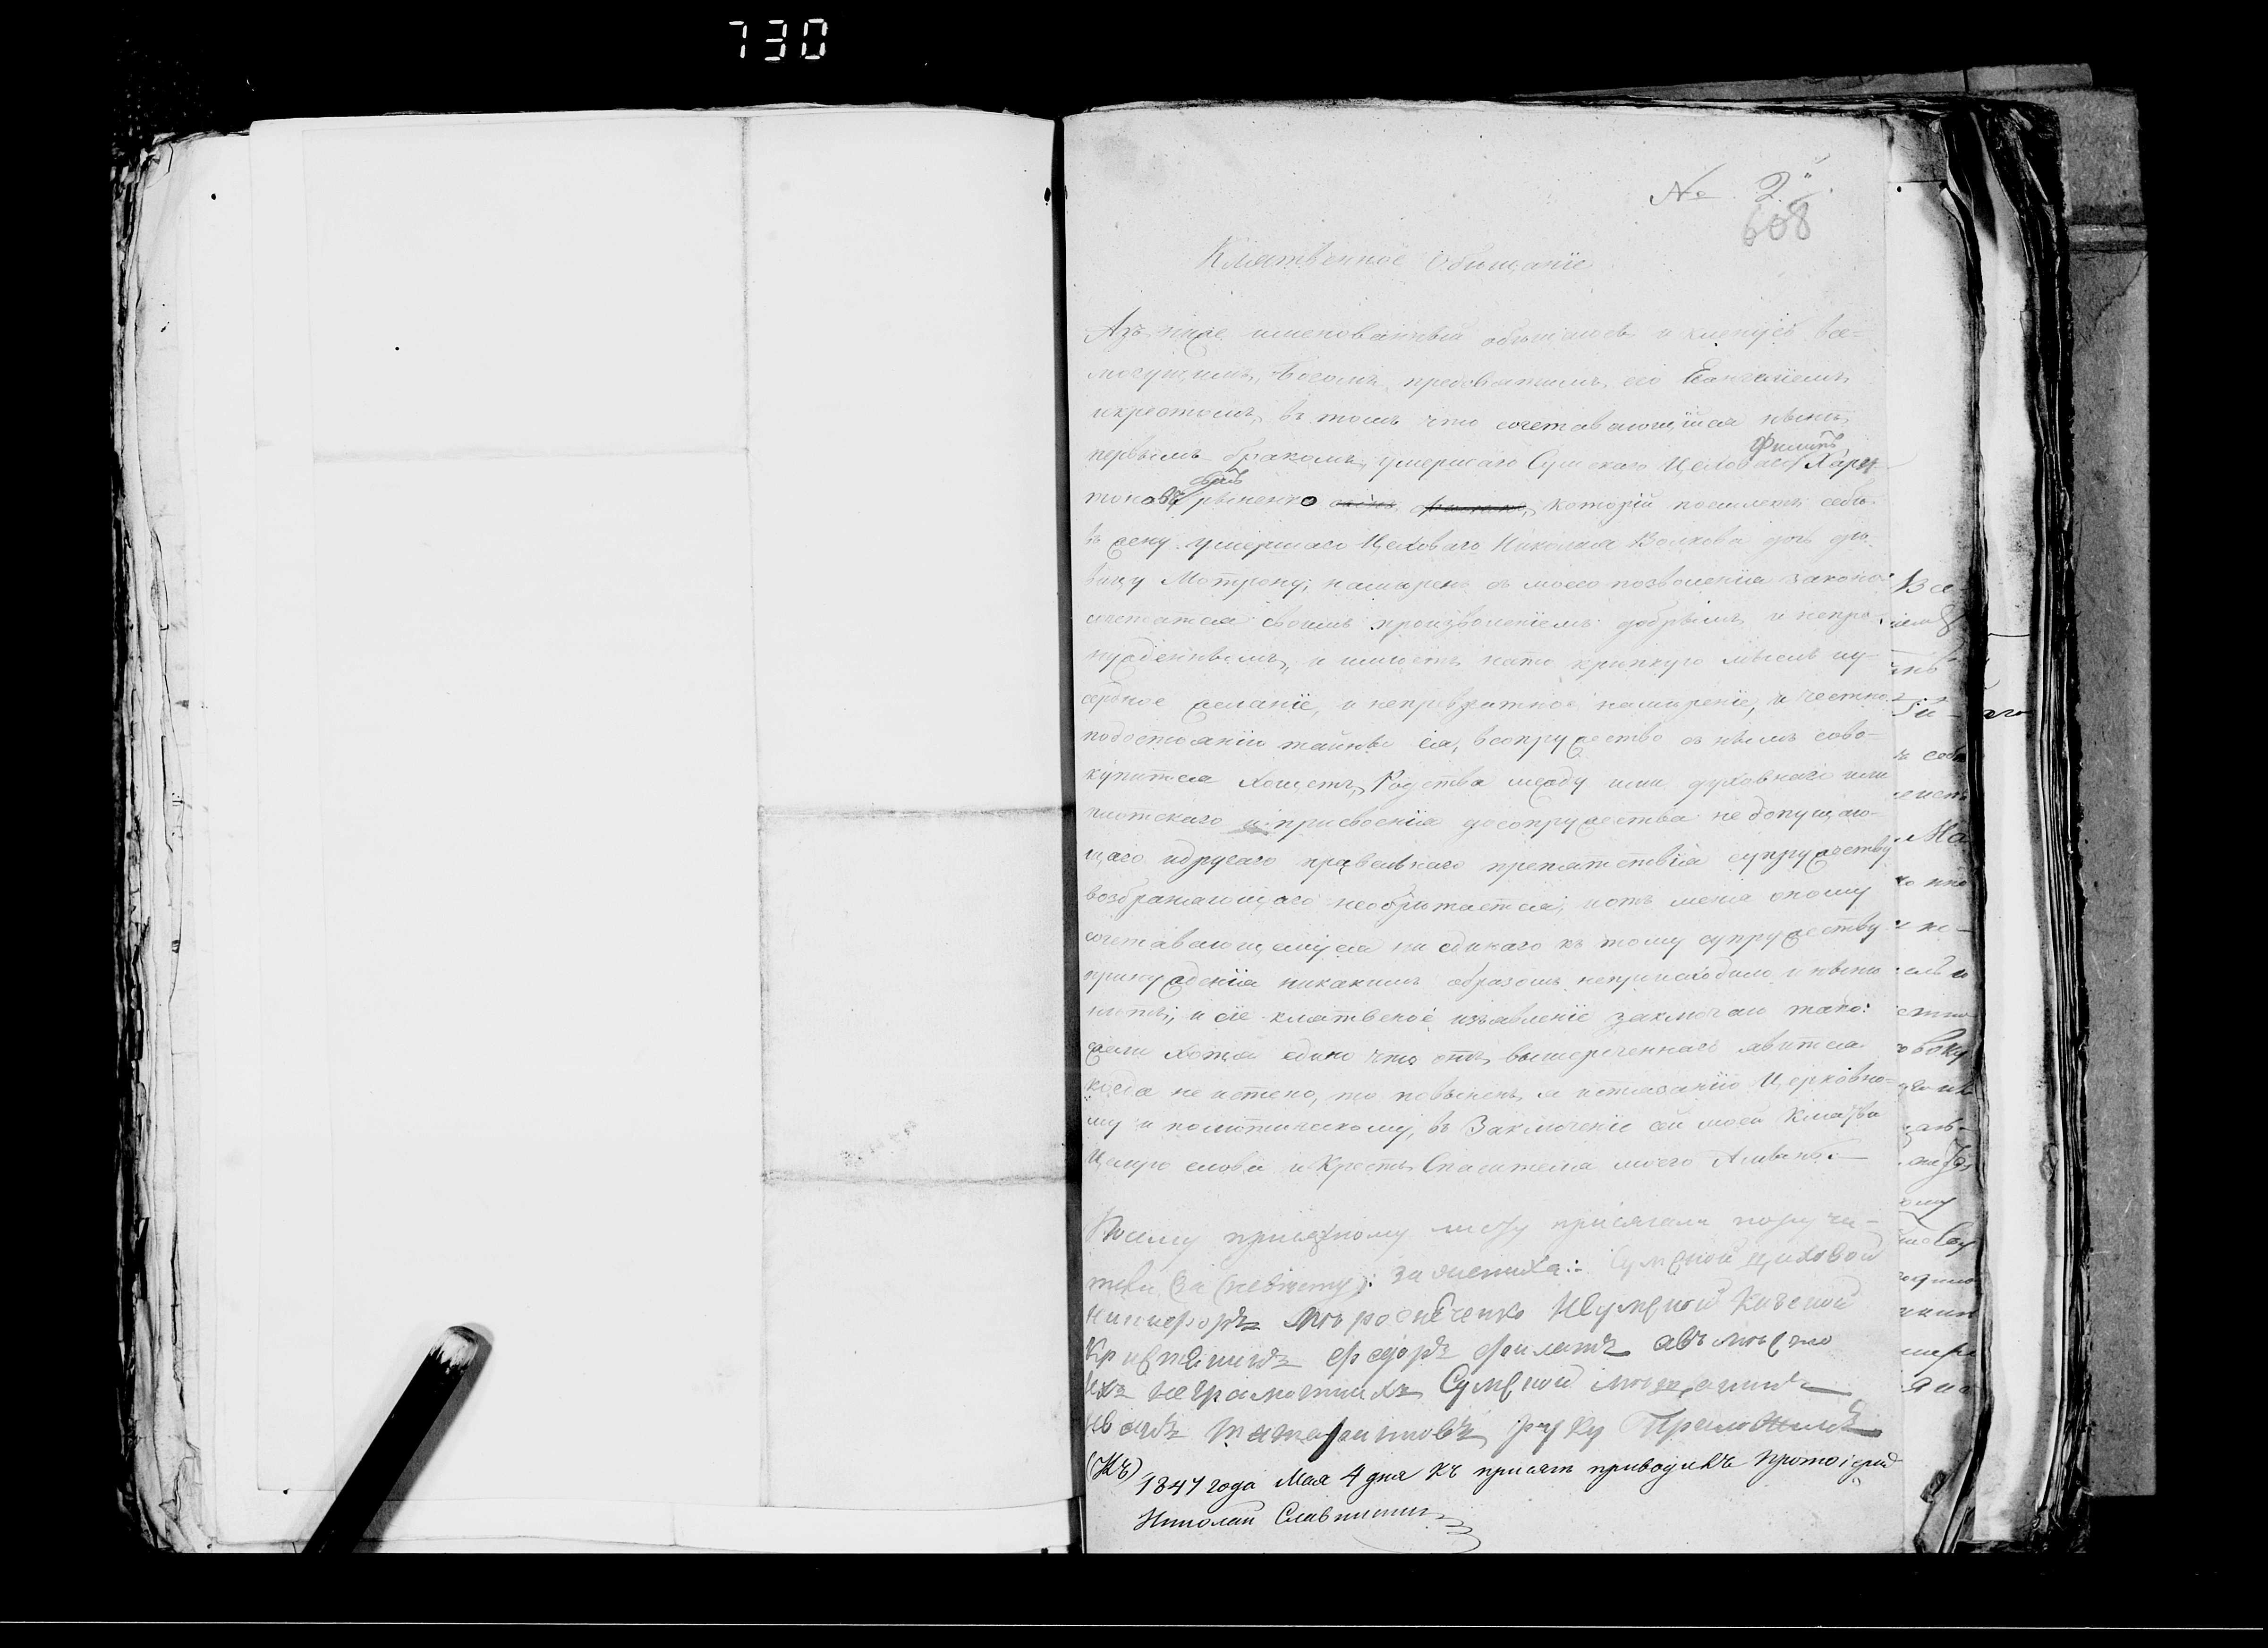 730
№ 2.
608
Клятвенное Обещанїе
Азъ ниже именованный обещаюсь и кленусь все-
могущимъ Богомъ, пресвятымъ его Евангелїемъ
икрестомъ, въ томъ что сочетавающїйся нынѣ
Филипъ
первымъ бракомъ, умершаго Сумскаго Цеховаго Хари-
сынъ
тонова который поемлетъ себѣ
въ жену умершаго Цеховаго Николая Волкова дочь дѣ-
вицу Мотрону; намѣренъ съ моего позволенїя законно
сочетатся своимъ произволенїемъ добрымъ и непри-
нужденнымъ, и имѣетъ нато крѣпкую мысль иу-
сердное желанїе, и непревратное намѣренїе, и честно
подостоянїю тайны сея, всопружество съ нымъ сово-
купитса хощетъ, Родства между ими духовнаго или
плотскаго и присвоенїя досопружества недопущаю-
щаго идругаго правельнаго препятствїя супружеству
возбраняющаго необрѣтается; иотъ мене оному
сочетавающемуся ни единаго къ тому супружеству
принужденїя никакимъ образомъ непроисходило и нынѣ
нѣтъ; и сїе клятвеное изъявленїе заключаю тако:
жели хотя едино что отъ вышереченнаго явится
когда не истено, то повыненъ я истязанїю Церковно-
му и политическому, въ Заключенїе сей моей Клятвы
Цѣлую слова и Крестъ Спасителя моего Аминь.
Ксему присяжному листу присягали поручи-
тели за жениха: Сумской цеховой
Никифоръ Исумской Казеной
федоръ филатъ авъместо
Ихъ неграмотнихъ Сумской мещанинъ
иванъ руку Приложилъ
(Къ) 1847 года Мая 4 дня Къ присягѣ приводилъ Протоіерей
Николай